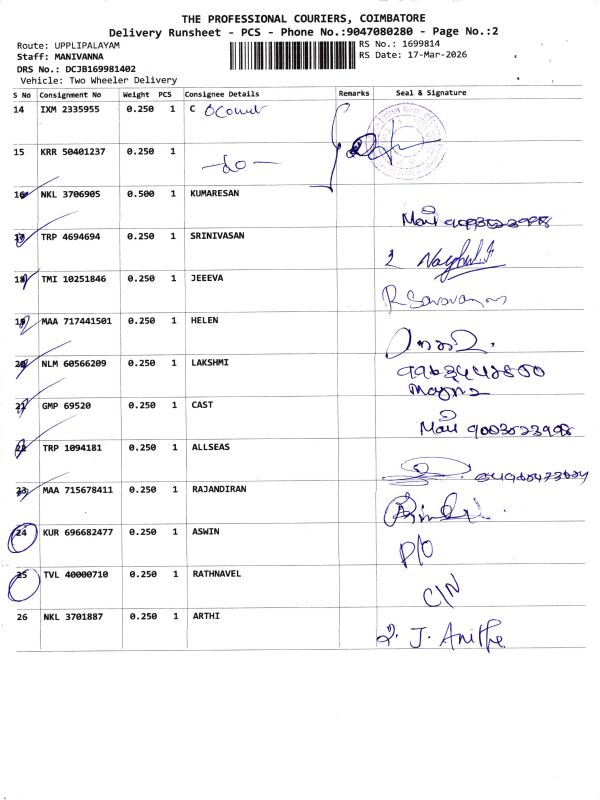 THE PROFESSIONAL COURIERS, COIMBATORE
Delivery Runsheet - PCS - Phone No.:9047080280 - Page No.:2
Route: UPPLIPALAYAM
RS No.: 1699814
Staff: MANIVANNA
RS Date: 17-Mar-2026
DRS No.: DCJB169981402
Vehicle: Two Wheeler Delivery
S No Consignment No Weight PCS Consignee Details Remarks Seal & Signature
14 IXM 2335955 0.250 1 C
15 KRR 50401237 0.250 1 -do-
16 NKL 3706905 0.500 1 KUMARESAN
17 TRP 4694694 0.250 1 SRINIVASAN
18 TMI 10251846 0.250 1 JEEEVA R Saravanan
19 MAA 717441501 0.250 1 HELEN
20 NLM 60566209 0.250 1 LAKSHMI
21 GMP 69520 0.250 1 CAST
22 TRP 1094181 0.250 1 ALLSEAS
23 MAA 715678411 0.250 1 RAJANDIRAN
24 KUR 696682477 0.250 1 ASWIN P/O
25 TVL 40000710 0.250 1 RATHNAVEL C/N
26 NKL 3701887 0.250 1 ARTHI J. Anithe